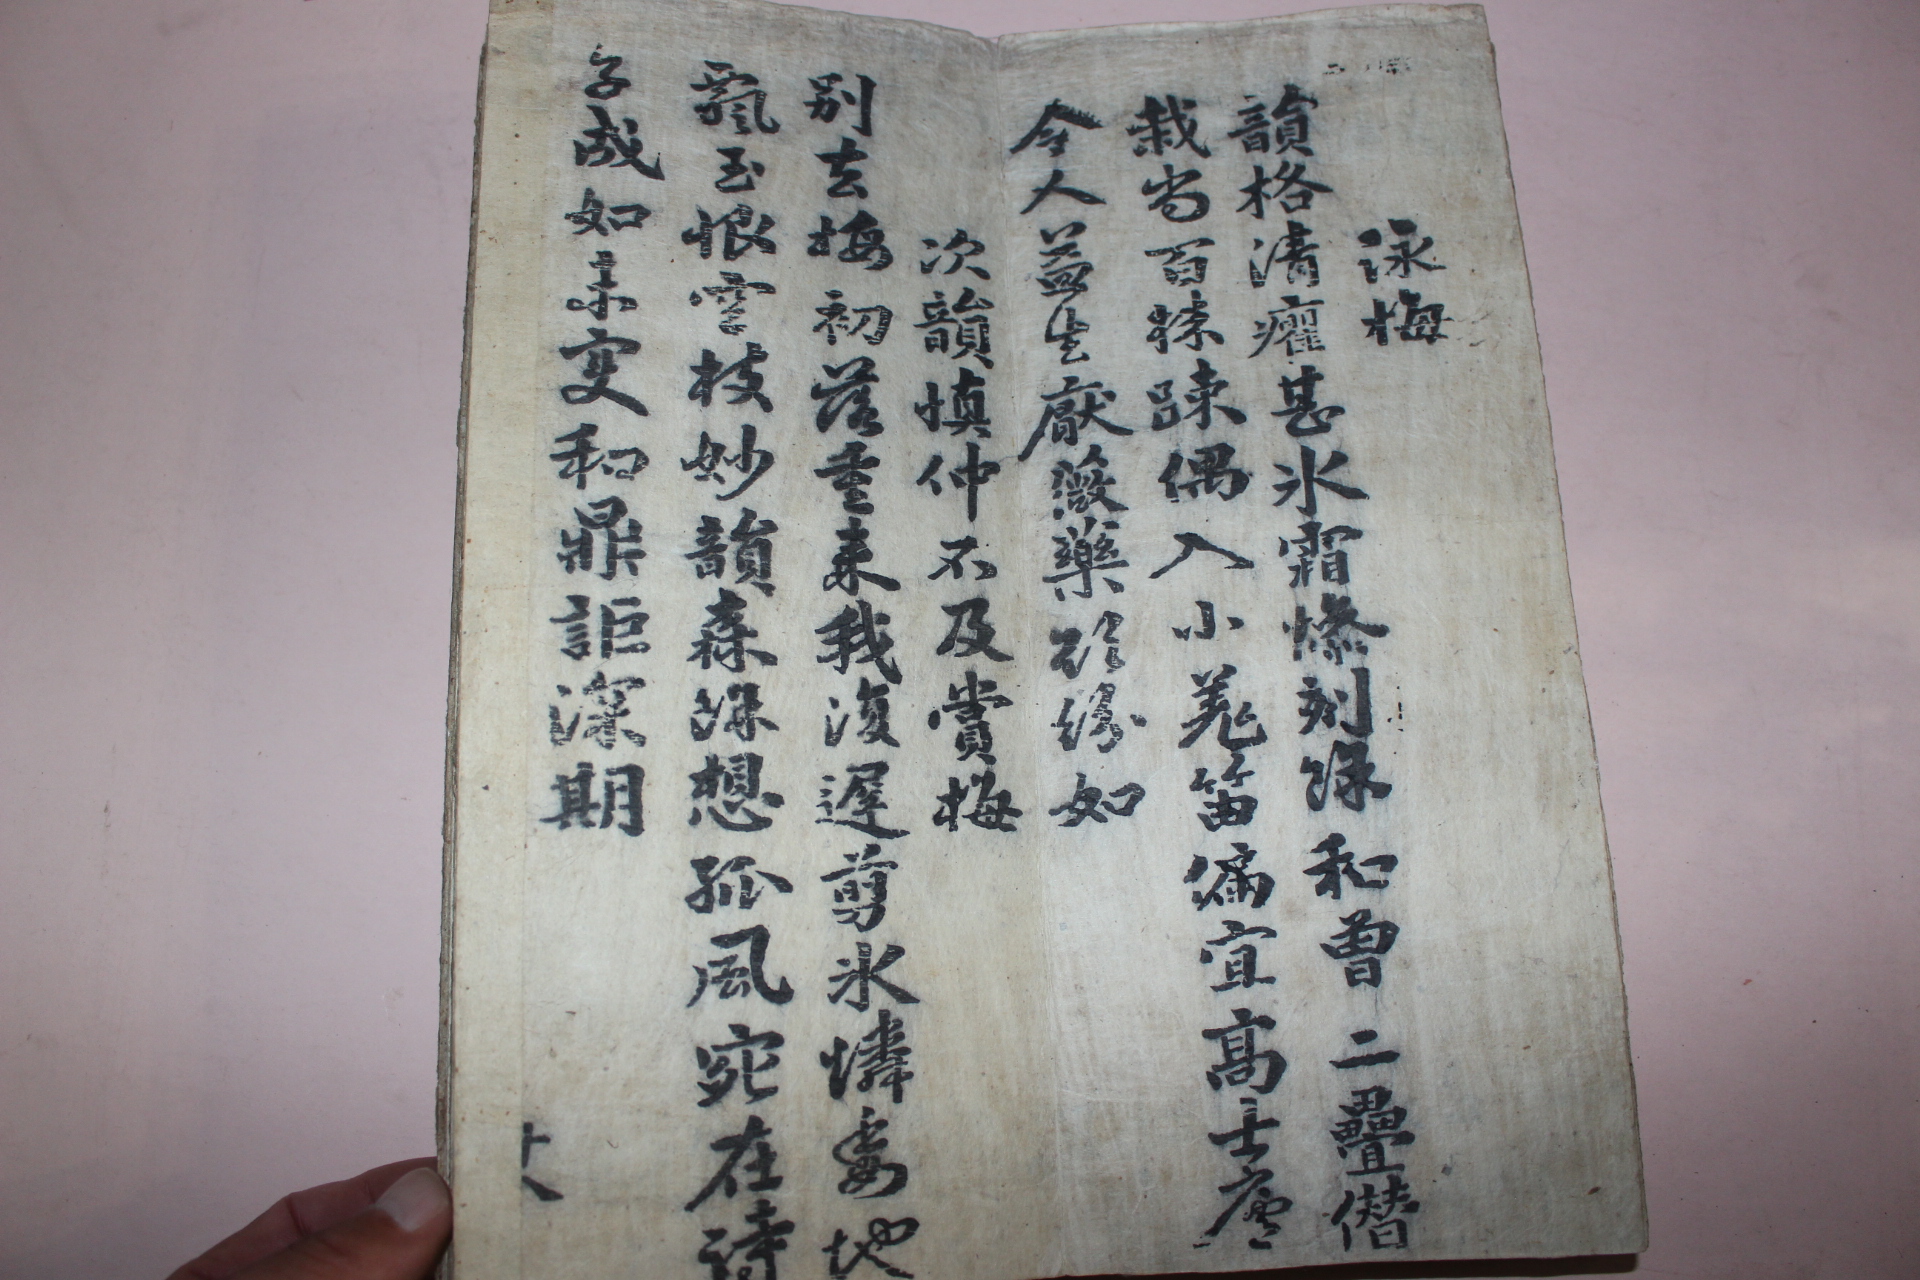 詠梅
韻格清癯甚氷霜慘刻餘和曾二疊僭
栽尚百株踈偶入小羌笛偏宜高士廬
令人益生厭薇藥紛如
次韻慎仲不及賞梅
別去梅初落重來我復遲剪氷憐委地
飄玉恨空枝妙韻森餘想孤風宛在詩
子成如未変和鼎詎深期